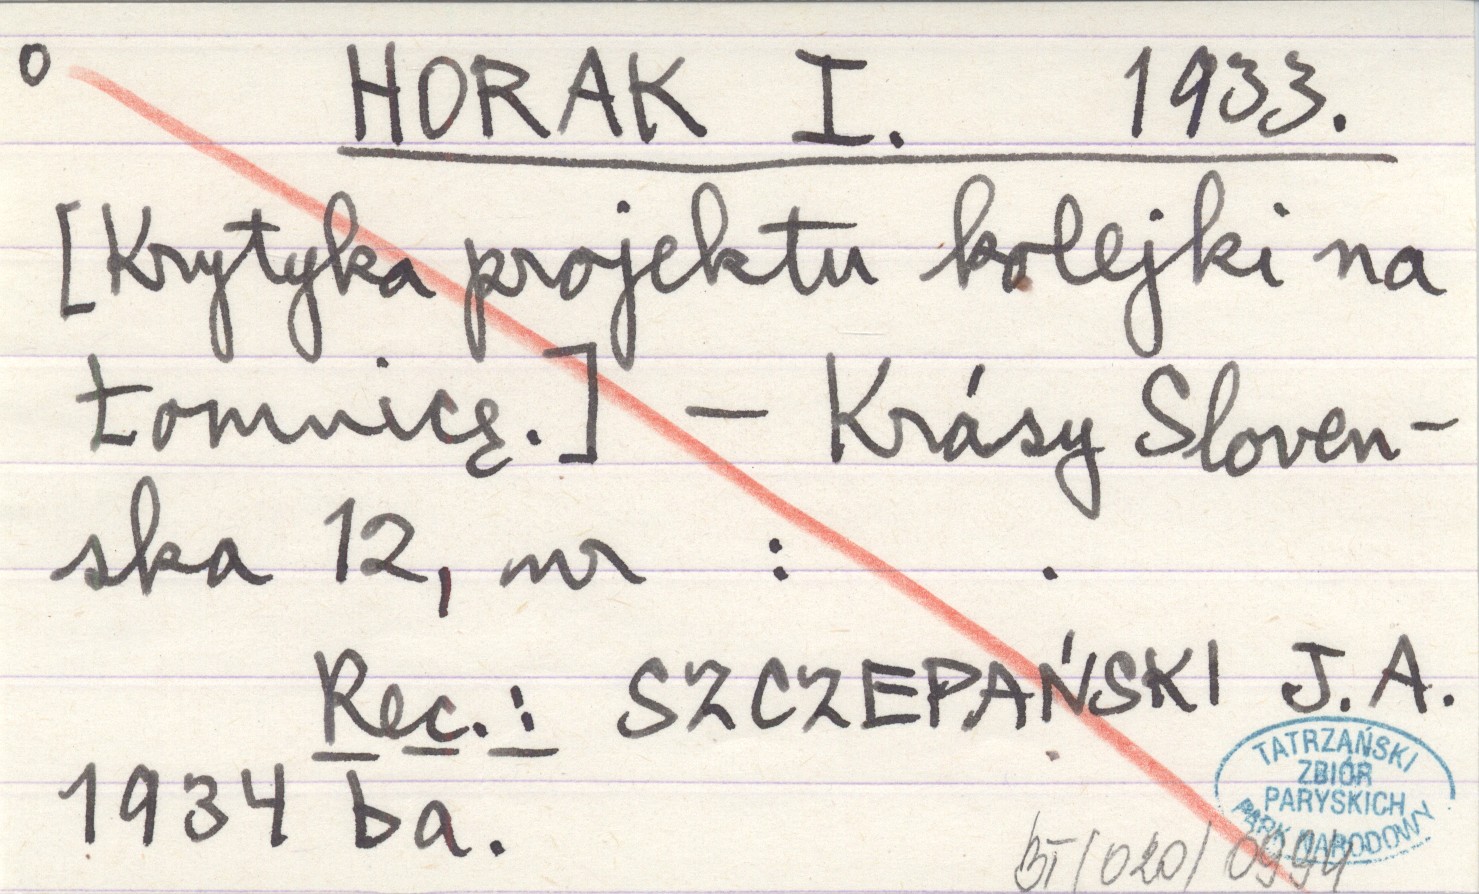 o HORAK I. 1933.
[Krytyka projektu kolejki na
Łomnicę.] — Krásy Sloven-
ska 12, nr : .
Rec.: SZCZEPAŃSKI J.A.
1934 ba.
TATRZAŃSKI
ZBIÓR
PARYSKICH
PARK NARODOWY
BT/020/0994